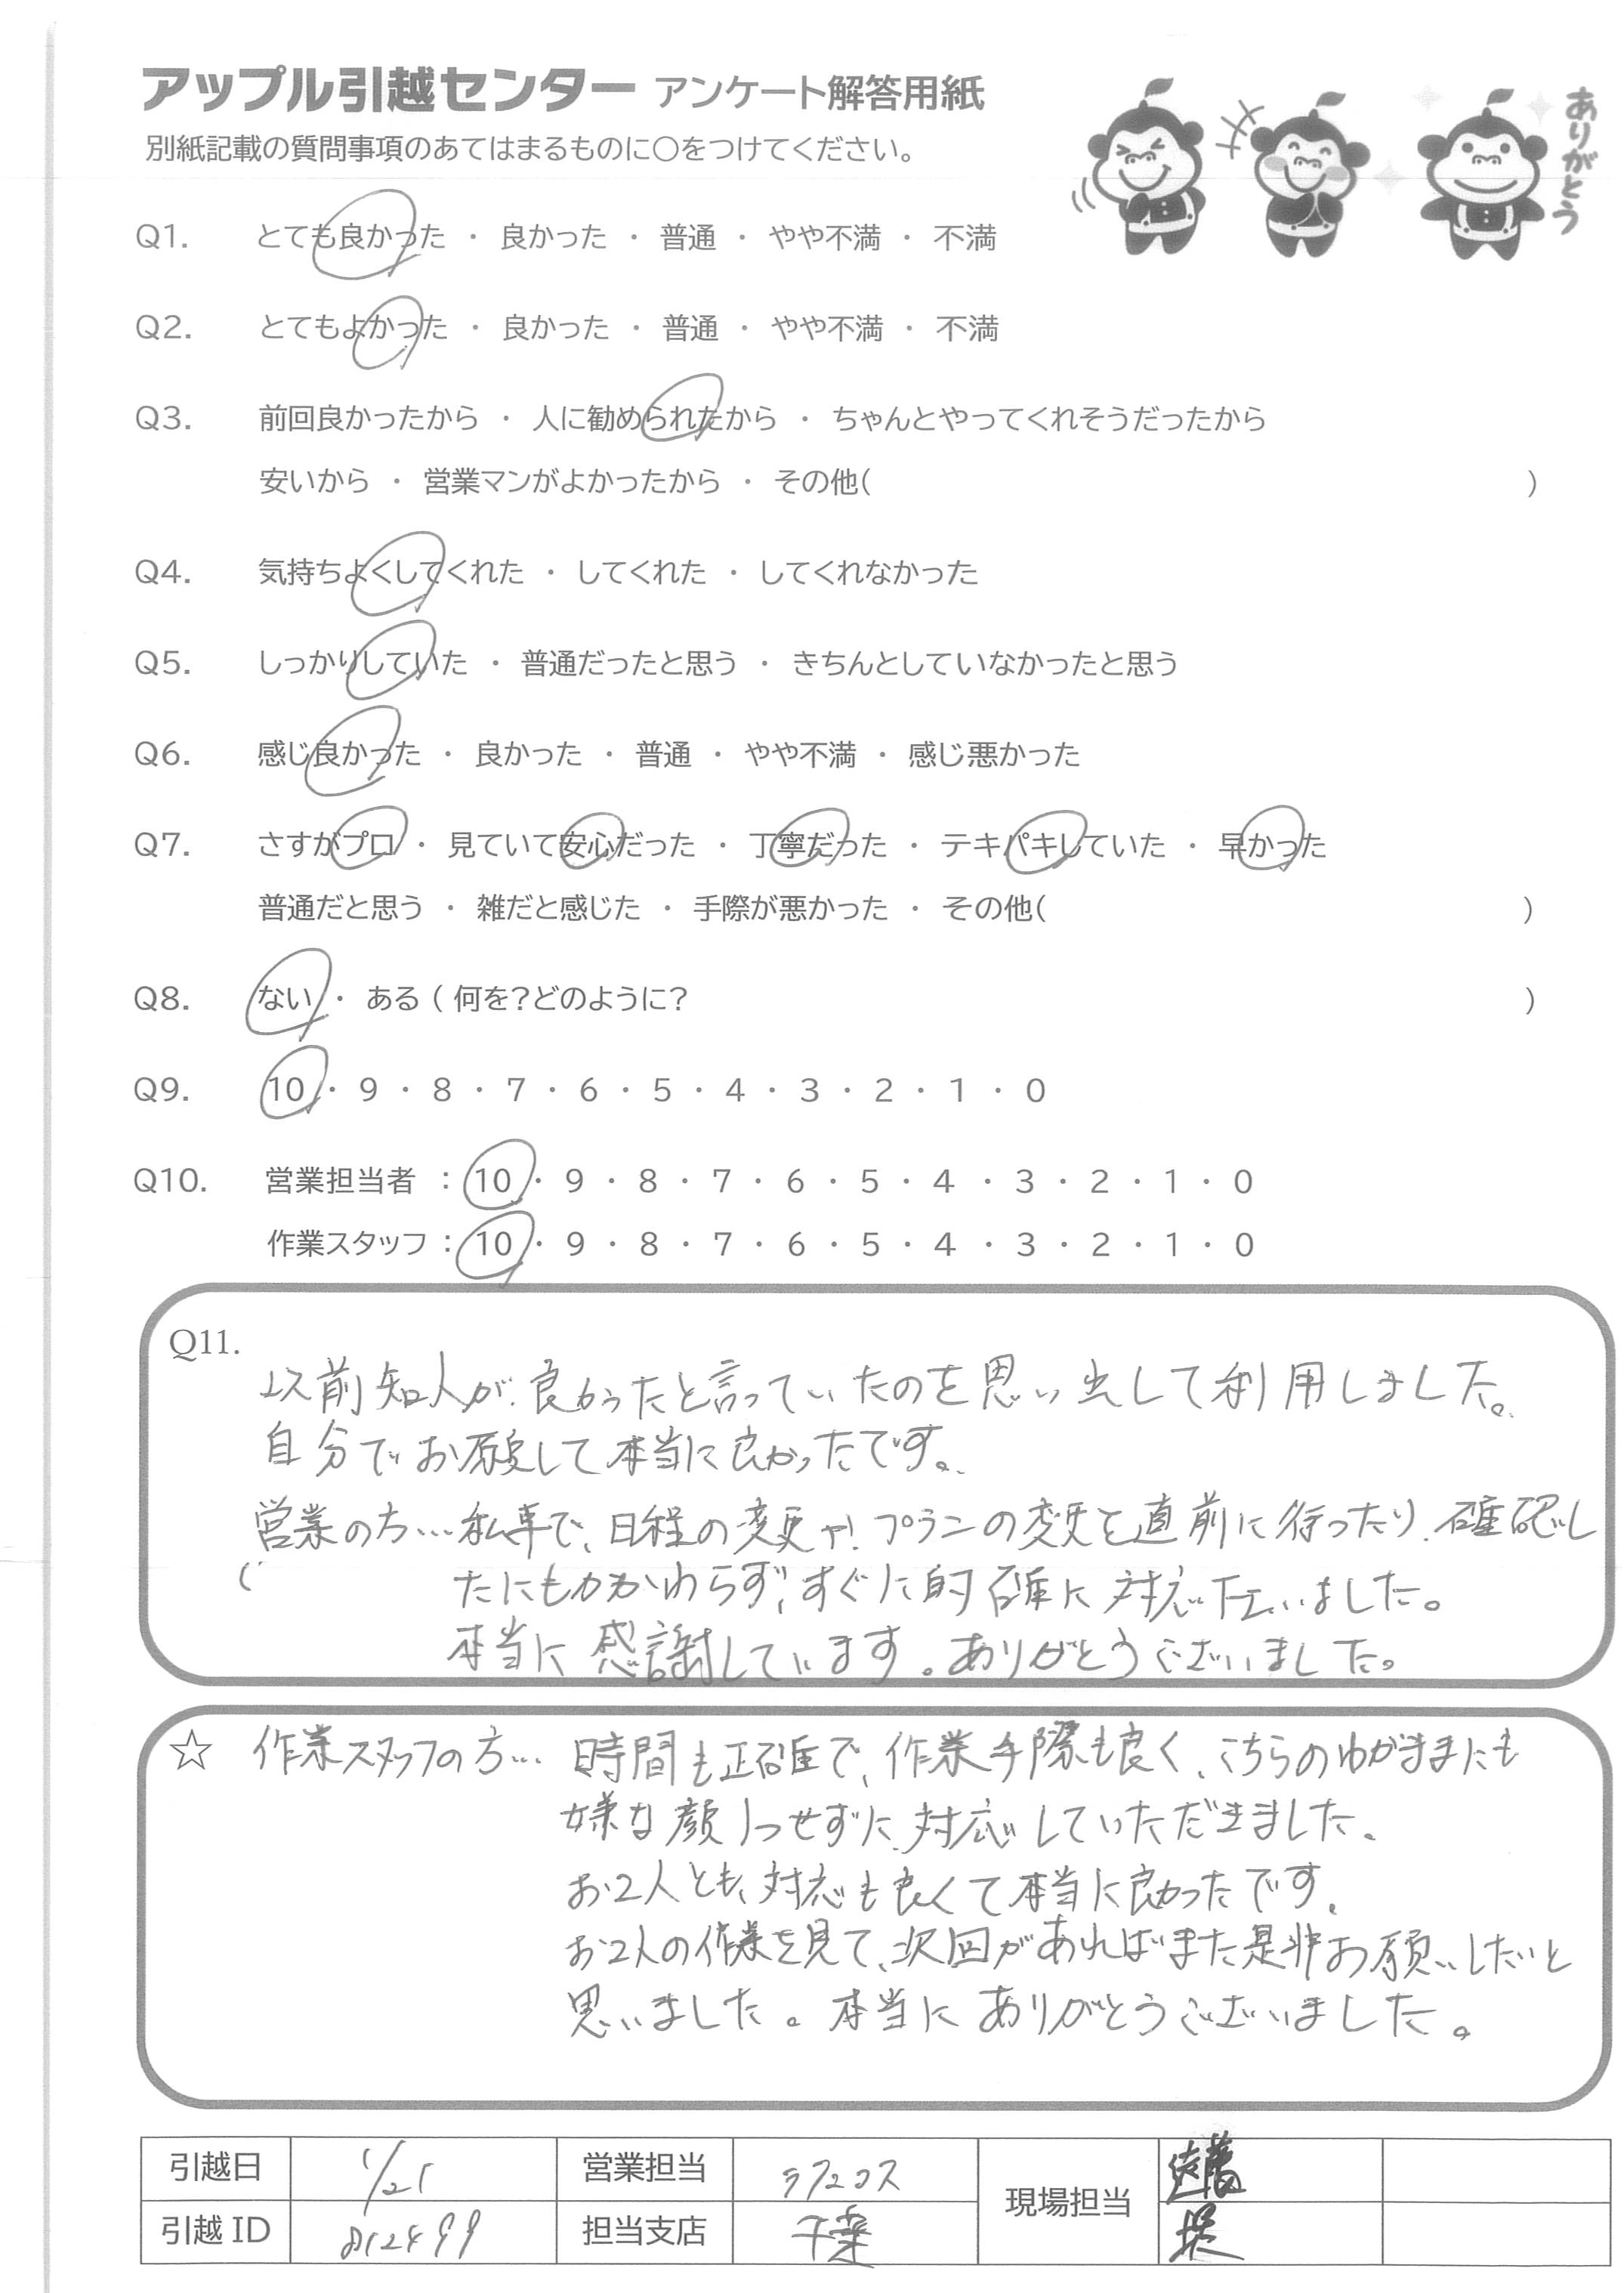 アップル引越センター アンケート解答用紙
別紙記載の質問事項のあてはまるものに〇をつけてください。
ありがとう
Q1. とても良かった ・ 良かった ・ 普通 ・ やや不満 ・ 不満
Q2. とてもよかった ・ 良かった ・ 普通 ・ やや不満 ・ 不満
Q3. 前回良かったから ・ 人に勧められたから ・ ちゃんとやってくれそうだったから
安いから ・ 営業マンがよかったから ・ その他( )
Q4. 気持ちよくしてくれた ・ してくれた ・ してくれなかった
Q5. しっかりしていた ・ 普通だったと思う ・ きちんとしていなかったと思う
Q6. 感じ良かった ・ 良かった ・ 普通 ・ やや不満 ・ 感じ悪かった
Q7. さすがプロ ・ 見ていて安心だった ・ 丁寧だった ・ テキパキしていた ・ 早かった
普通だと思う ・ 雑だと感じた ・ 手際が悪かった ・ その他( )
Q8. ない ・ ある ( 何を?どのように? )
Q9. 10 ・ 9 ・ 8 ・ 7 ・ 6 ・ 5 ・ 4 ・ 3 ・ 2 ・ 1 ・ 0
Q10. 営業担当者 : 10 ・ 9 ・ 8 ・ 7 ・ 6 ・ 5 ・ 4 ・ 3 ・ 2 ・ 1 ・ 0
作業スタッフ : 10 ・ 9 ・ 8 ・ 7 ・ 6 ・ 5 ・ 4 ・ 3 ・ 2 ・ 1 ・ 0
Q11.
以前知人が良かったと言っていたのを思い出して利用しました。
自分でお願して本当に良かったです。
営業の方…私事で、日程の変更や、プランの変更を直前に行ったり、確認し
たにもかかわらず、すぐに的確に対応下さいました。
本当に感謝しています。ありがとうございました。
☆ 作業スタッフの方… 時間も正確で、作業手際も良く、こちらのわがままにも
嫌な顔1つせずに、対応していただきました。
お2人とも、対応も良くて本当に良かったです。
お2人の作業を見て、次回があればまた是非お願いしたいと
思いました。本当にありがとうございました。
引越日 1/21 営業担当 現場担当
引越 ID 担当支店 千葉